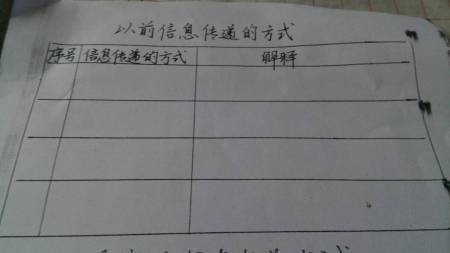 以前信息传递的方式
序号 信息传递的方式 解释